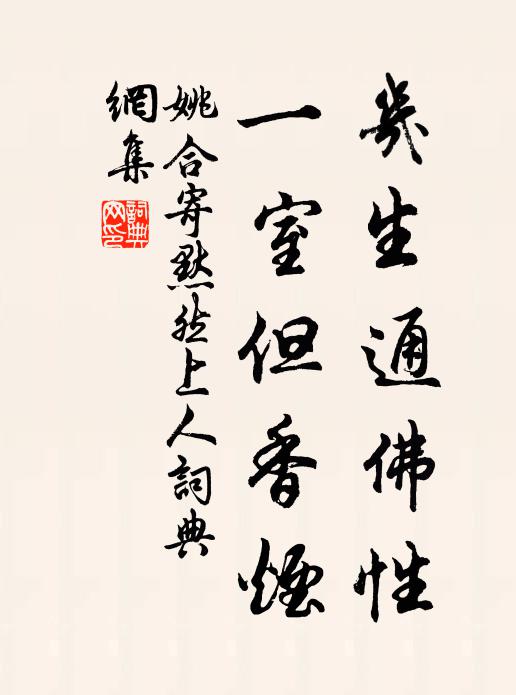 幾生通佛性
一室但香煙
姚合寄默然上人詞典
網集
詞典
网印